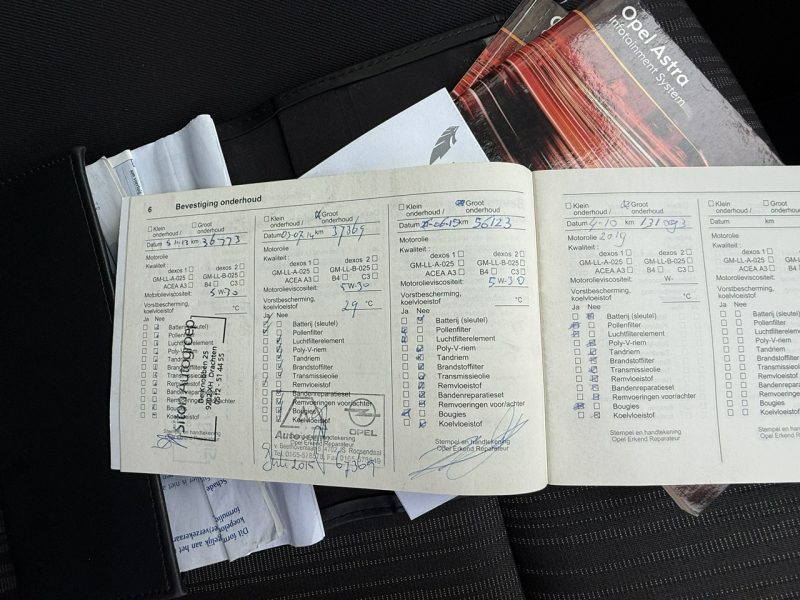 Opel Astra
Infotainment System
6 Bevestiging onderhoud
Klein onderhoud / Groot onderhoud
Datum km 36773
Motorolie
Kwaliteit :
dexos 1 dexos 2
GM-LL-A-025 GM-LL-B-025
ACEA A3 B4 C3
Motorolieviscositeit:
5W-30
Vorstbescherming,
koelvloeistof °C
Ja Nee
Batterij (sleutel)
Pollenfilter
Luchtfilterelement
Poly-V-riem
Tandriem
Brandstoffilter
Transmissieolie
Remvloeistof
Bandenreparatieset
Remvoeringen voor/achter
Bougies
Koelvloeistof
Stempel en handtekening
Siton Autogroep
9202 VH Drachten
0512 - 51 44 55
Klein onderhoud / Groot onderhoud
Datum 03-07-14 km 37369
Motorolie
Kwaliteit :
dexos 1 dexos 2
GM-LL-A-025 GM-LL-B-025
ACEA A3 B4 C3
Motorolieviscositeit:
5W-30
Vorstbescherming,
koelvloeistof 29 °C
Ja Nee
Batterij (sleutel)
Pollenfilter
Luchtfilterelement
Poly-V-riem
Tandriem
Brandstoffilter
Transmissieolie
Remvloeistof
Bandenreparatieset
Remvoeringen voor/achter
Bougies
Koelvloeistof
OPEL
v. Beethovenlaan 5, 4702 JS Roosendaal
Tel. 0165-578578, Fax 0165-578549
Juli 2015 67369
Klein onderhoud / Groot onderhoud
Datum 25-06-15 km 56123
Motorolie
Kwaliteit :
dexos 1 dexos 2
GM-LL-A-025 GM-LL-B-025
ACEA A3 B4 C3
Motorolieviscositeit:
5W-30
Vorstbescherming,
koelvloeistof °C
Ja Nee
Batterij (sleutel)
Pollenfilter
Luchtfilterelement
Poly-V-riem
Tandriem
Brandstoffilter
Transmissieolie
Remvloeistof
Bandenreparatieset
Remvoeringen voor/achter
Bougies
Koelvloeistof
Stempel en handtekening
Opel Erkend Reparateur
Klein onderhoud / Groot onderhoud
Datum 4-10 km 131093
Motorolie 2019
Kwaliteit :
dexos 1 dexos 2
GM-LL-A-025 GM-LL-B-025
ACEA A3 B4 C3
Motorolieviscositeit: W-
Vorstbescherming,
koelvloeistof °C
Ja Nee
Batterij (sleutel)
Pollenfilter
Luchtfilterelement
Poly-V-riem
Tandriem
Brandstoffilter
Transmissieolie
Remvloeistof
Bandenreparatieset
Remvoeringen voor/achter
Bougies
Koelvloeistof
Stempel en handtekening
Opel Erkend Reparateur
Klein onderhoud / Groot onderhoud
Datum km
Motorolie
Kwaliteit :
dexos 1
GM-LL-A-025 GM-LL-B
ACEA A3 B4
Motorolieviscositeit:
Vorstbescherming,
koelvloeistof
Ja Nee
Batterij (sleutel)
Pollenfilter
Luchtfilterelement
Poly-V-riem
Tandriem
Brandstoffilter
Transmissieolie
Remvloeistof
Bandenreparatieset
Remvoeringen voor/a
Bougies
Koelvloeistof
Stempel en handteke
Opel Erkend Reparate